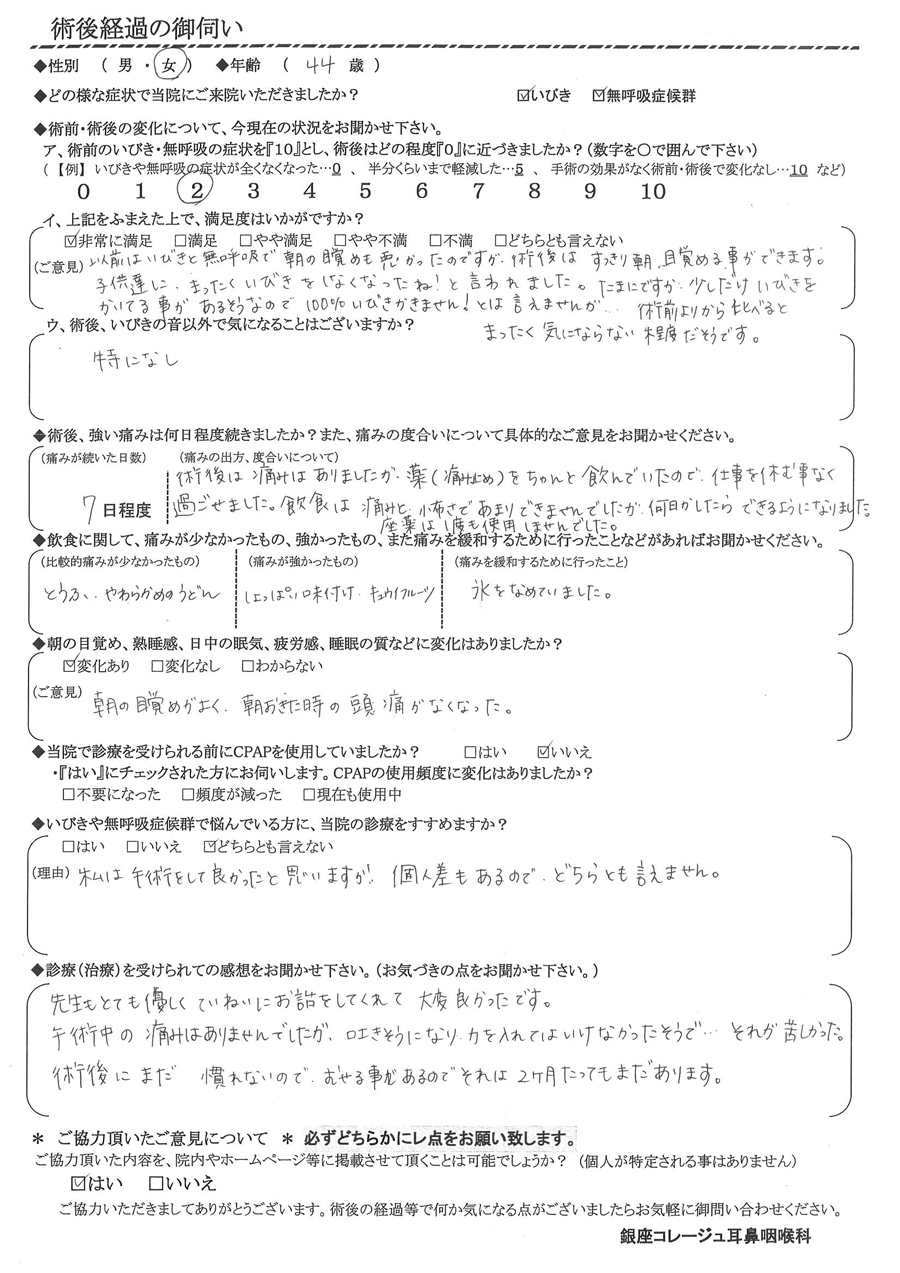 術後経過の御伺い
◆性別 （ 男 ・ 女 ） ◆年齢 （ 44 歳 ）
◆どの様な症状で当院にご来院いただきましたか？ ☑いびき ☑無呼吸症候群
◆術前・術後の変化について、今現在の状況をお聞かせ下さい。
ア、術前のいびき・無呼吸の症状を『10』とし、術後はどの程度『0』に近づきましたか？（数字を〇で囲んで下さい）
（【例】 いびきや無呼吸の症状が全くなくなった…0 、 半分くらいまで軽減した…5 、 手術の効果がなく術前・術後で変化なし…10 など）
0 1 2 3 4 5 6 7 8 9 10
イ、上記をふまえた上で、満足度はいかがですか？
☑非常に満足 □満足 □やや満足 □やや不満 □不満 □どちらとも言えない
（ご意見） 以前はいびきと無呼吸で朝の目覚めも悪かったのですが、術後は すっきり朝、目覚める事ができます。
子供達に、まったくいびきをしなくなったね！と言われました。たまにですが、少しだけ いびきを
かいてる事が あるそうなので 100%いびきかきません！とは 言えませんが… 術前よりから比べると
まったく 気にならない 程度だそうです。
ウ、術後、いびきの音以外で気になることはございますか？
特になし
◆術後、強い痛みは何日程度続きましたか？また、痛みの度合いについて具体的なご意見をお聞かせください。
（痛みが続いた日数） （痛みの出方、度合いについて）
術後は 痛みは ありましたが、薬（痛み止め）をちゃんと 飲んでいたので、仕事を休む事なく
7 日程度 過ごせました。飲食は 痛みと、怖さであまりできませんでしたが、何日かしたら できるようになりました。
座薬は 1度も使用しませんでした。
◆飲食に関して、痛みが少なかったもの、強かったもの、また痛みを緩和するために行ったことなどがあればお聞かせください。
（比較的痛みが少なかったもの） （痛みが強かったもの） （痛みを緩和するために行ったこと）
とうふ、やわらかめのうどん しょっぱい味付け、キュウイフルーツ 氷をなめていました。
◆朝の目覚め、熟睡感、日中の眠気、疲労感、睡眠の質などに変化はありましたか？
☑変化あり □変化なし □わからない
（ご意見） 朝の目覚めがよく、朝おきた時の頭痛がなくなった。
◆当院で診療を受けられる前にCPAPを使用していましたか？ □はい ☑いいえ
・『はい』にチェックされた方にお伺いします。CPAPの使用頻度に変化はありましたか？
□不要になった □頻度が減った □現在も使用中
◆いびきや無呼吸症候群で悩んでいる方に、当院の診療をすすめますか？
□はい □いいえ ☑どちらとも言えない
（理由） 私は手術をして良かったと思いますが、個人差もあるので、どちらとも言えません。
◆診療（治療）を受けられての感想をお聞かせ下さい。（お気づきの点をお聞かせ下さい。）
先生もとても優しくていねいにお話をしてくれて 大変良かったです。
手術中の 痛みはありませんでしたが、吐きそうになり、力を入れてはいけなかったそうで… それが苦しかった。
術後に まだ 慣れないので、むせる事があるのでそれは 2ヶ月たってもまだあります。
＊ ご協力頂いたご意見について ＊ 必ずどちらかにレ点をお願い致します。
ご協力頂いた内容を、院内やホームページ等に掲載させて頂くことは可能でしょうか？ （個人が特定される事はありません）
☑はい □いいえ
ご協力いただきましてありがとうございます。術後の経過等で何か気になる点がございましたらお気軽に御問い合わせください。
銀座コレージュ耳鼻咽喉科